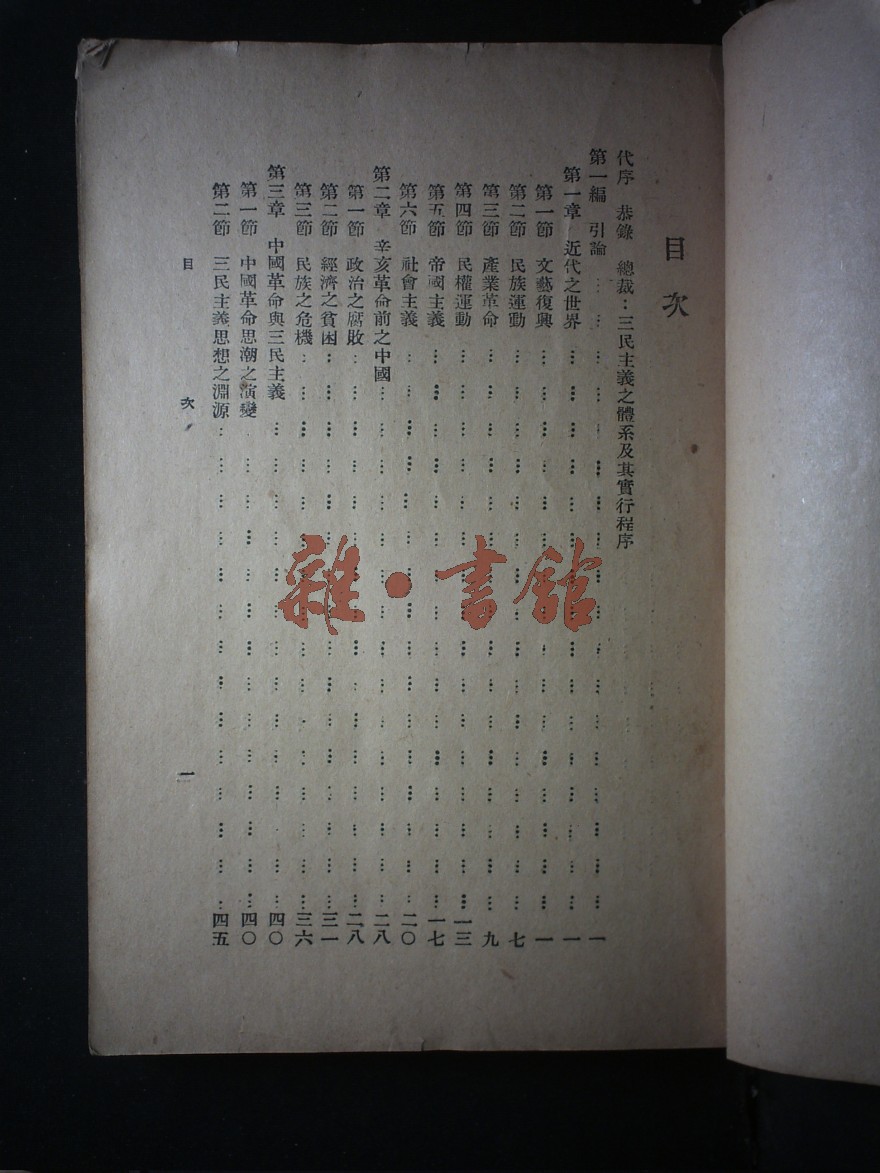 目次
代序 恭錄 總裁：三民主義之體系及其實行程序
第一編 引論……一
第一章 近代之世界……一
第一節 文藝復興……一
第二節 民族運動……七
第三節 產業革命……九
第四節 民權運動……一三
第五節 帝國主義……一七
第六節 社會主義……二〇
第二章 辛亥革命前之中國……二八
第一節 政治之腐敗……二八
第二節 經濟之貧困……三一
第三節 民族之危機……三六
第三章 中國革命與三民主義……四〇
第一節 中國革命思潮之演變……四〇
第二節 三民主義思想之淵源……四五
目次 一
雜·書館